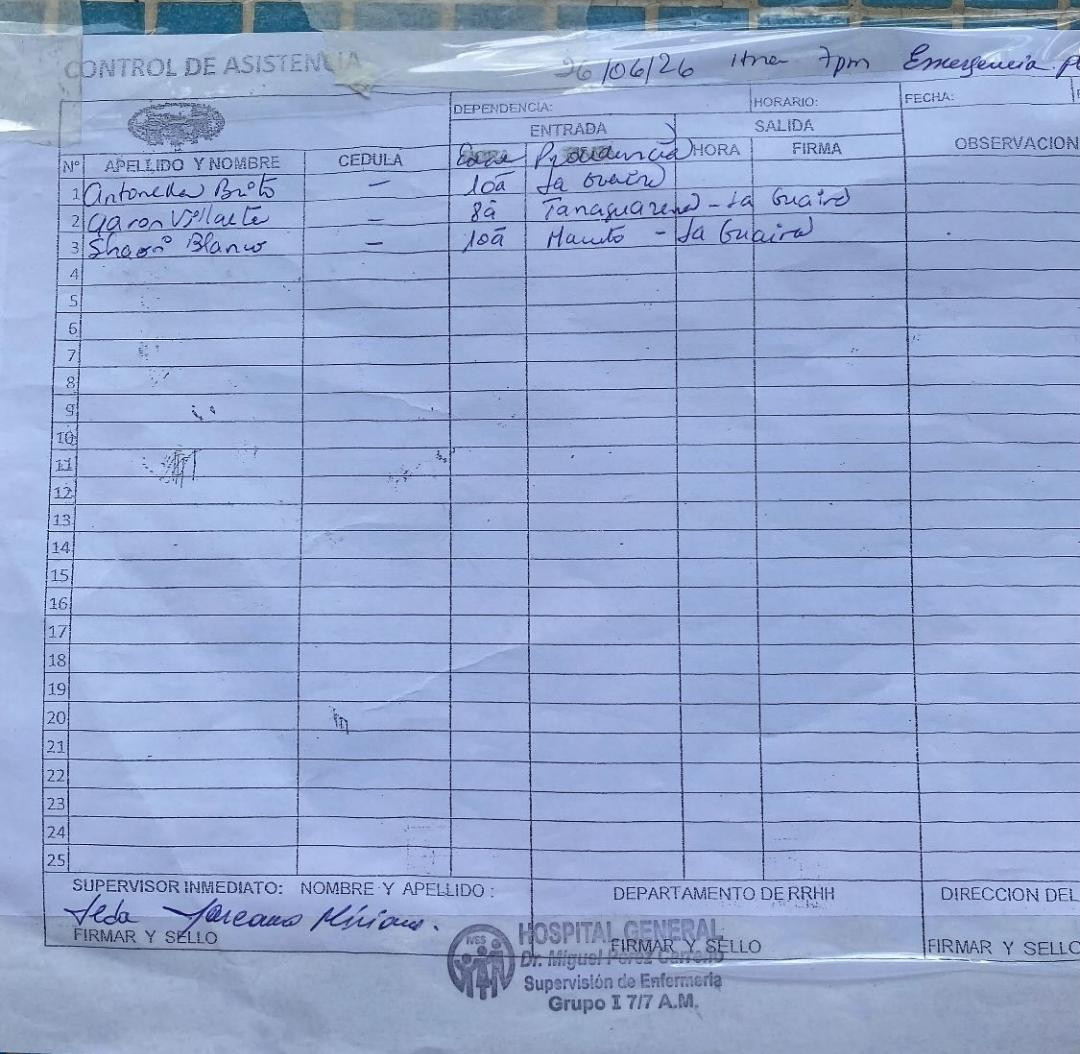 CONTROL DE ASISTENCIA 26/06/26 Hora 7pm Emergencia
DEPENDENCIA: HORARIO: FECHA:
ENTRADA SALIDA
Nº APELLIDO Y NOMBRE CEDULA Edad Procedencia HORA FIRMA OBSERVACION
1 Antonella Brito — 10ā La Guaira
2 Aaron — 8ā Tanaguarena - La Guaira
3 Blanco — 10ā Macuto - La Guaira
4
5
6
7
8
9
10
11
12
13
14
15
16
17
18
19
20
21
22
23
24
25
SUPERVISOR INMEDIATO: NOMBRE Y APELLIDO : DEPARTAMENTO DE RRHH DIRECCION DEL
FIRMAR Y SELLO FIRMAR Y SELLO FIRMAR Y SELLO
IVSS
HOSPITAL GENERAL
Dr. Miguel Pérez Carreño
Supervisión de Enfermería
Grupo I 7/7 A.M.